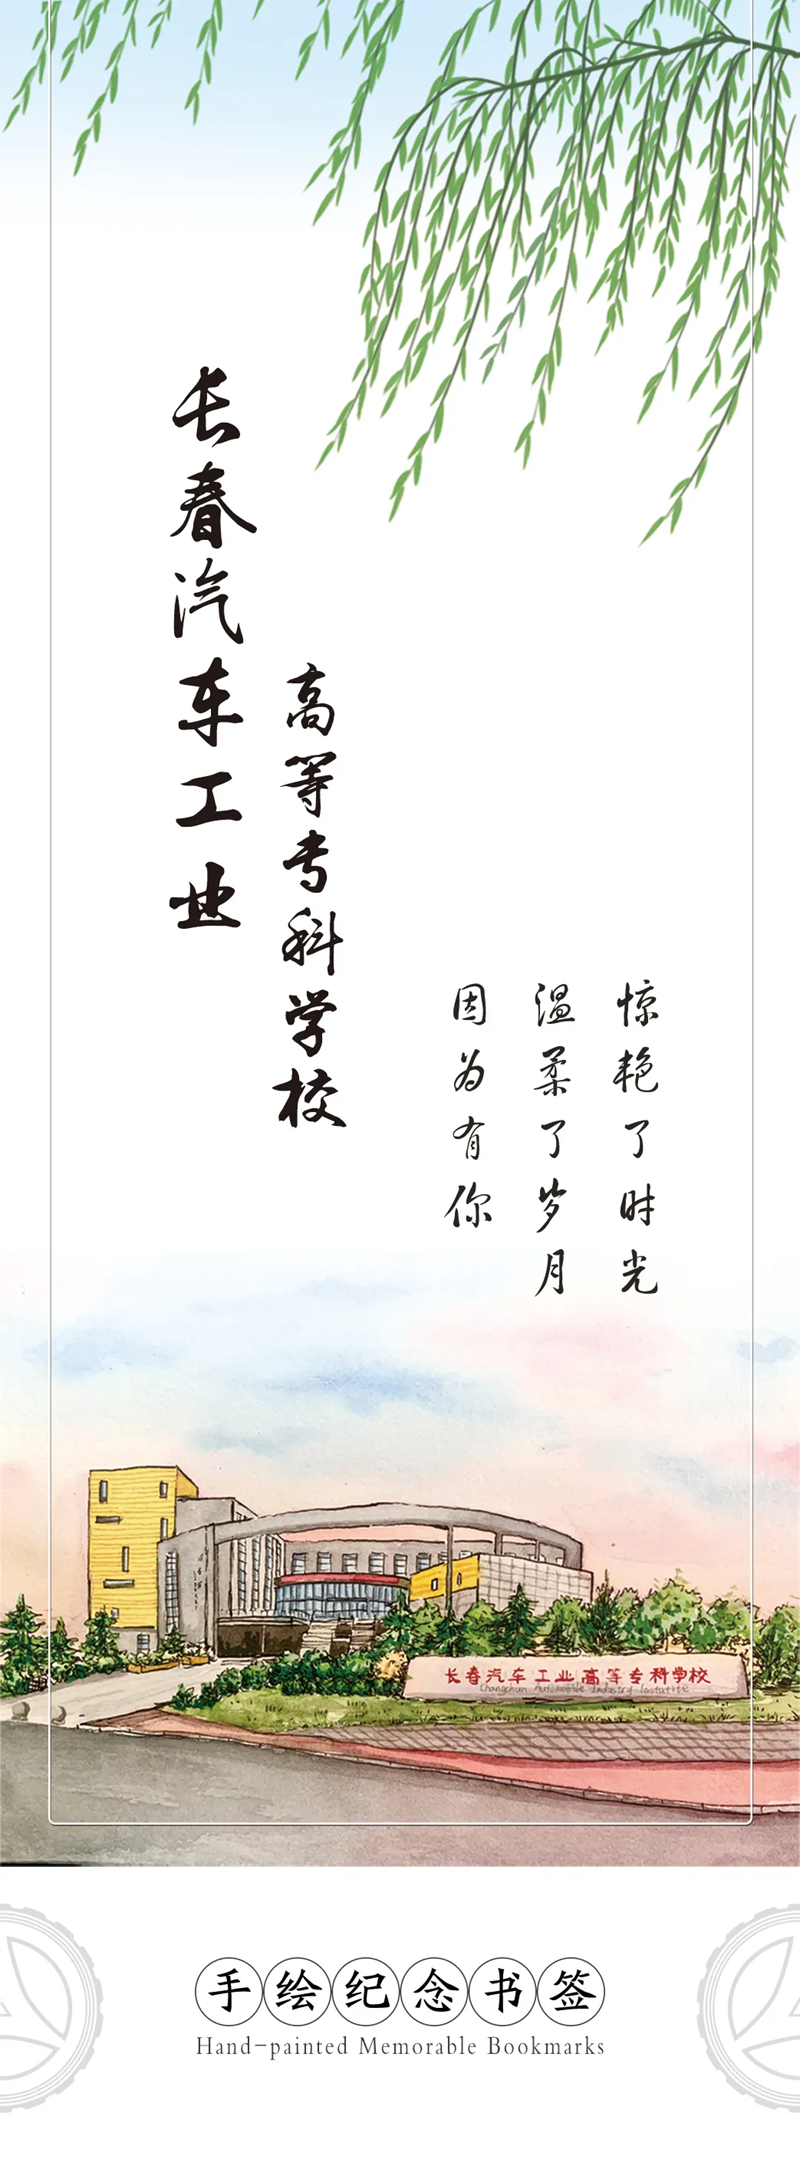 长春汽车工业
高等专科学校
因为有你
温柔了岁月
惊艳了时光
长春汽车工业高等专科学校
Changchun Automobile Industry Iastatite
手绘纪念书签
Hand-painted Memorable Bookmarks